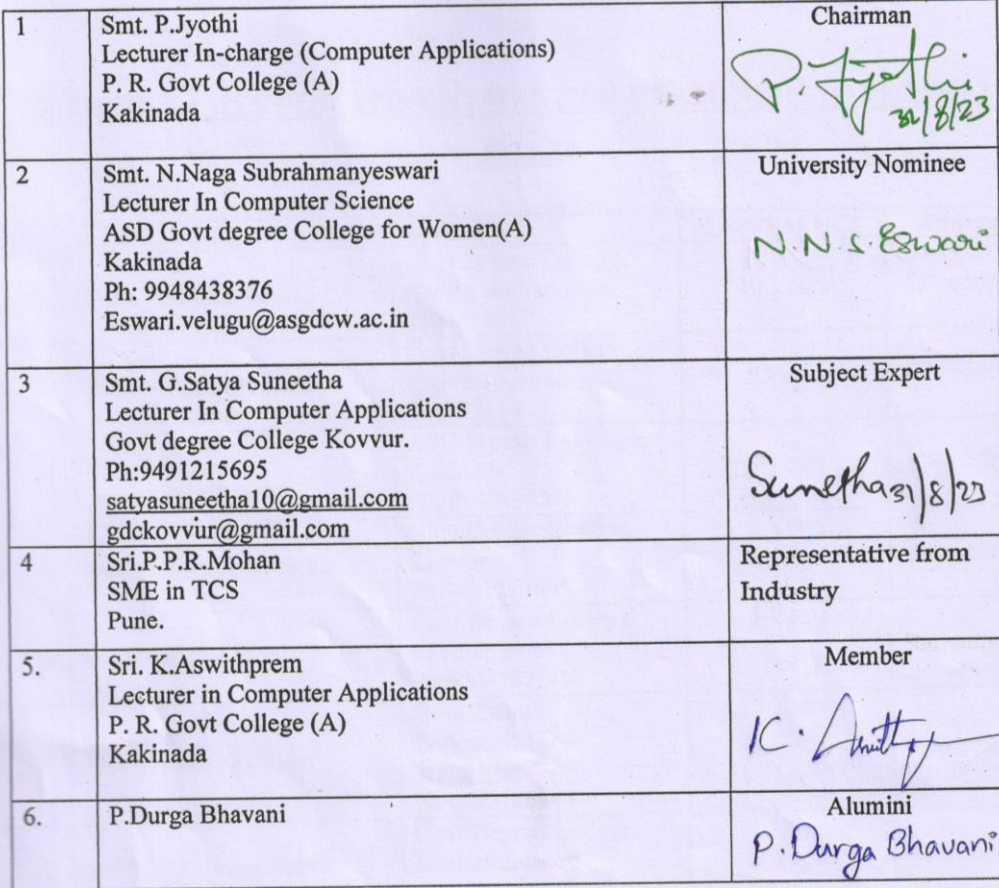 1
Smt. P.Jyothi
Lecturer In-charge (Computer Applications)
P. R. Govt College (A)
Kakinada
Chairman
P. Jyothi
31/8/23
2
Smt. N.Naga Subrahmanyeswari
Lecturer In Computer Science
ASD Govt degree College for Women(A)
Kakinada
Ph: 9948438376
Eswari.velugu@asgdcw.ac.in
University Nominee
N.N.S.Eswari
3
Smt. G.Satya Suneetha
Lecturer In Computer Applications
Govt degree College Kovvur.
Ph:9491215695
satyasuneetha10@gmail.com
gdckovvur@gmail.com
Subject Expert
Sunetha 31/8/23
4
Sri.P.P.R.Mohan
SME in TCS
Pune.
Representative from
Industry
5.
Sri. K.Aswithprem
Lecturer in Computer Applications
P. R. Govt College (A)
Kakinada
Member
K.
6.
P.Durga Bhavani
Alumini
P.Durga Bhavani